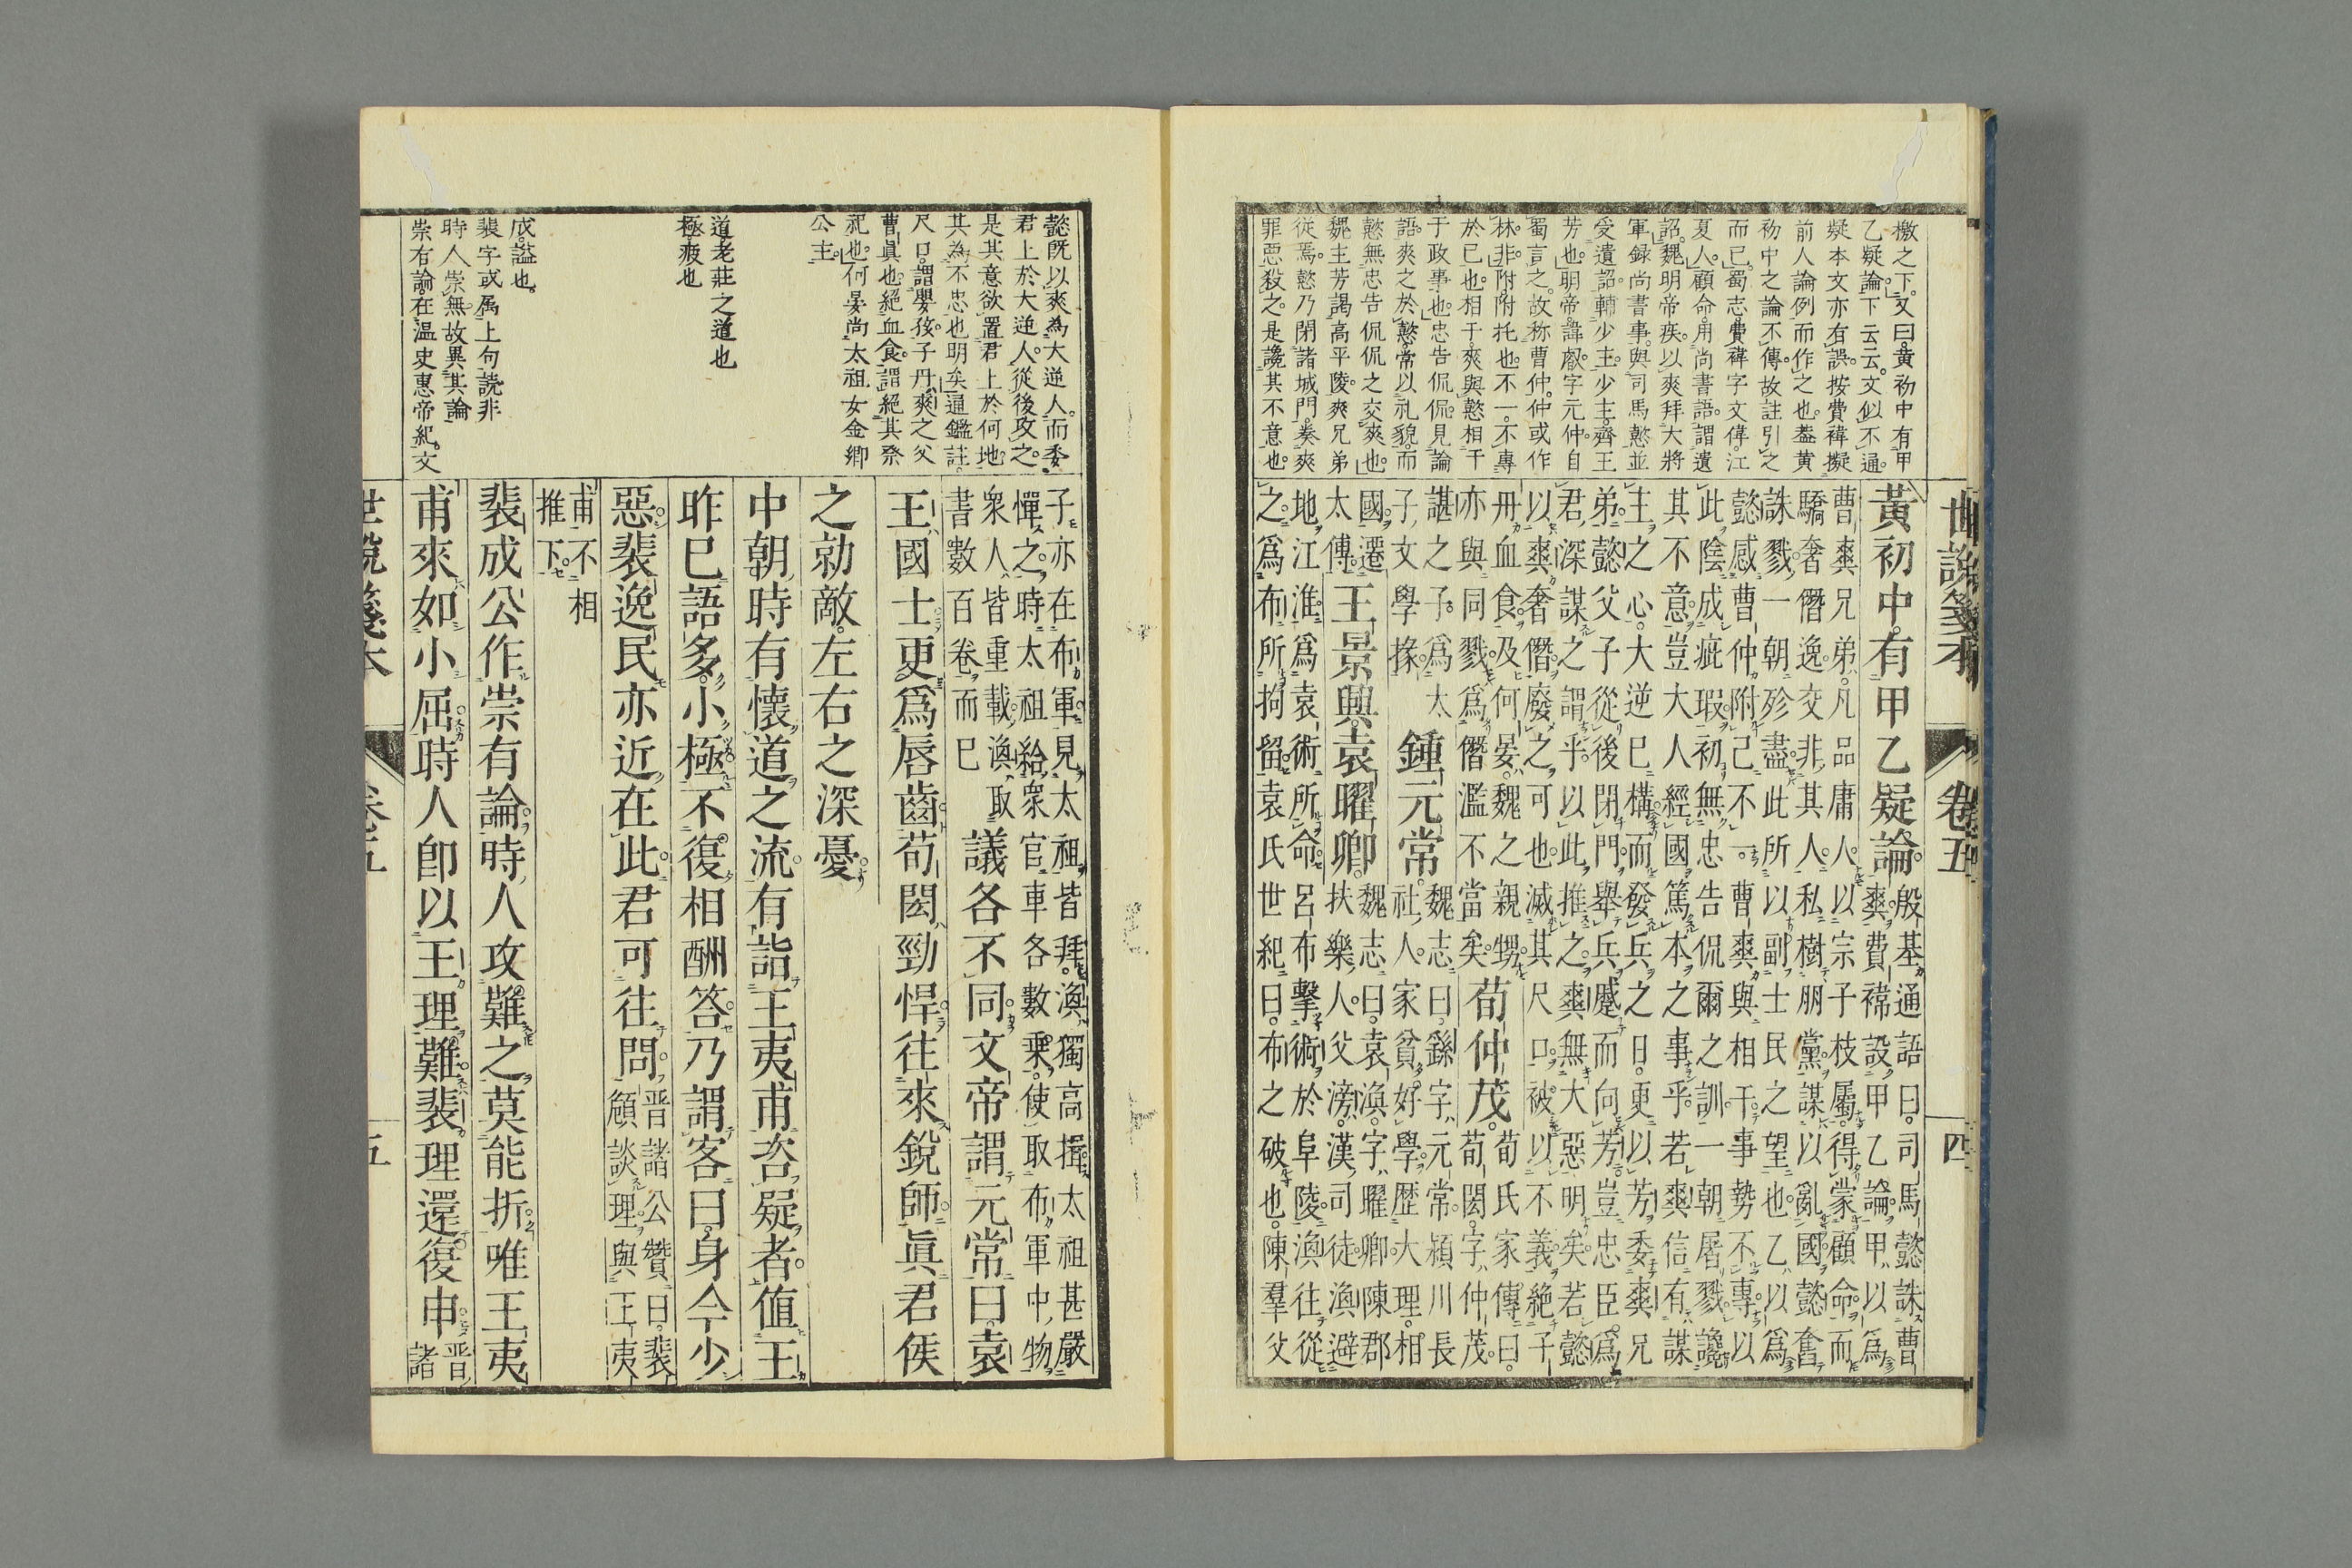 世說箋本
卷五
四
檄之下。又曰。黃初中有甲
乙疑論。下云云。文似不通。
疑本文亦有誤。按費褘擬
前人論例而作之也。蓋黃
初中之論不傳。故註引之
而已。蜀志。費褘字文偉。江
夏人。顧命。用尚書語。謂遺
詔。魏明帝疾。以爽拜大將
軍錄尚書事。與司馬懿並
受遺詔。輔少主。少主。齊王
芳也。明帝。諱叡字元仲。自
蜀言之。故称曹仲。仲或作
林。非。附附托也。不一。不專
於已也。相干。爽與懿相干
于政事也。忠告侃侃。見論
語。爽之於懿。常以礼貌。而
懿無忠告侃侃之交。爽也。
魏主芳謁高平陵。爽兄弟
從焉。懿乃閉諸城門。奏爽
罪惡殺之。是讒其不意也。
黃初中。有甲乙疑論。
殷基通語曰。司馬懿誅曹
爽。費褘設甲乙論。甲以爲
曹爽兄弟。凡品庸人。以宗子枝屬。得蒙顧命。而
驕奢僭逸。交非其人。私樹朋黨。謀以亂國。懿奮
誅戮。一朝殄盡。此所以副士民之望也。乙以爲
懿感曹仲附己不一。曹爽與相干。事勢不專。以
此陰成疵瑕。初無忠告侃爾之訓。一朝屠戮。讒
其不意。豈大人經國篤本之事乎。若爽信有謀
主之心。大逆已構。而發兵之日。更以芳委爽兄
弟。懿父子從後閉門。舉兵蹙而向芳。豈忠臣爲
君深謀之謂乎。以此推之。爽無大惡明矣。若懿
以爽奢僭。廢之可也。滅其尺口。被以不義。絕子
丹血食。及何晏。魏之親甥。
亦與同戮。爲僭濫不當矣。
荀仲茂。
荀氏家傳曰。
荀閎。字仲茂。
諶之子。爲太
子文學掾。
鍾元常
魏志曰。繇字元常。潁川長
社人。家貧好學。歷大理。相
國。遷
太傅。
王景興。袁曜卿。
魏志曰。袁渙。字曜卿。陳郡
扶樂人。父滂。漢司徒。渙避
地江淮。爲袁術所命。呂布擊術於阜陵。渙往從
之。爲布所拘留。袁氏世紀曰。布之破也。陳羣父
懿既以爽為大逆人。而委
君上於大逆人。從後攻之。
是其意欲置君上於何地。
其為不忠也明矣。通鑑註。
尺口。謂嬰孩。子丹。爽之父
曹眞也。絕血食。謂絕其祭
祀也。何晏尚太祖女金鄉
公主。
道。老莊之道也
極。疲也
成。謚也。
裴字或属上句読非
時人崇無。故異其論
崇有論。在温史惠帝紀。文
子亦在布軍。見太祖。皆拜。渙獨高揖。太祖甚嚴
憚之。時太祖給衆官車各數乘。使取布軍中物。
衆人皆重載。渙取
書數百卷而已
議各不同。文帝謂元常曰。袁
王國士。更爲唇齒。荀閎勁悍。往來銳師。眞君侯
之勍敵。左右之深憂。
中朝時。有懷道之流。有詣王夷甫咨疑者。値王
昨已語多。小極。不復相酬答。乃謂客曰。身今少
惡。裴逸民亦近在此。君可往問。
晉諸公贊曰。裴
頠談理。與王夷
甫不相
推下。
裴成公作崇有論。時人攻難之。莫能折。唯王夷
甫來。如小屈。時人卽以王理難裴。理還復申。
晉諸
世說箋本
卷五
五